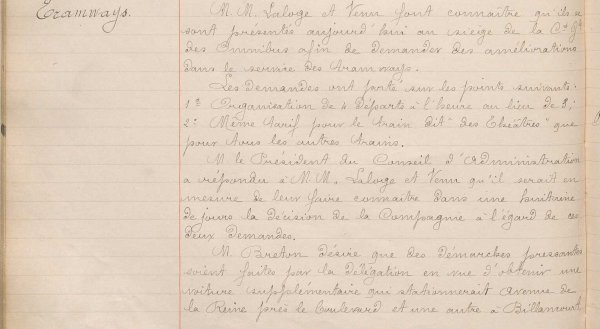 Tramways.
M.M. Laloge et Venn font connaître qu'ils se
sont présentés aujourd'hui au siège de la Cie Gle
des Omnibus afin de demander des améliorations
dans le service des tramways.
Les demandes ont porté sur les points suivants:
1º Organisation de 4 départs à l'heure au lieu de 3;
2º Même tarif pour le train dit "des théâtres" que
pour tous les autres trains.
M. le Président du Conseil d'administration
a répondu à M.M. Laloge et Venn qu'il serait en
mesure de leur faire connaître dans une huitaine
de jours la décision de la Compagnie à l'égard de ces
deux demandes.
M. Breton désire que des démarches pressantes
soient faites par la délégation en vue d'obtenir une
voiture supplémentaire qui stationnerait avenue de
la Reine près le boulevard et une autre à Billancourt